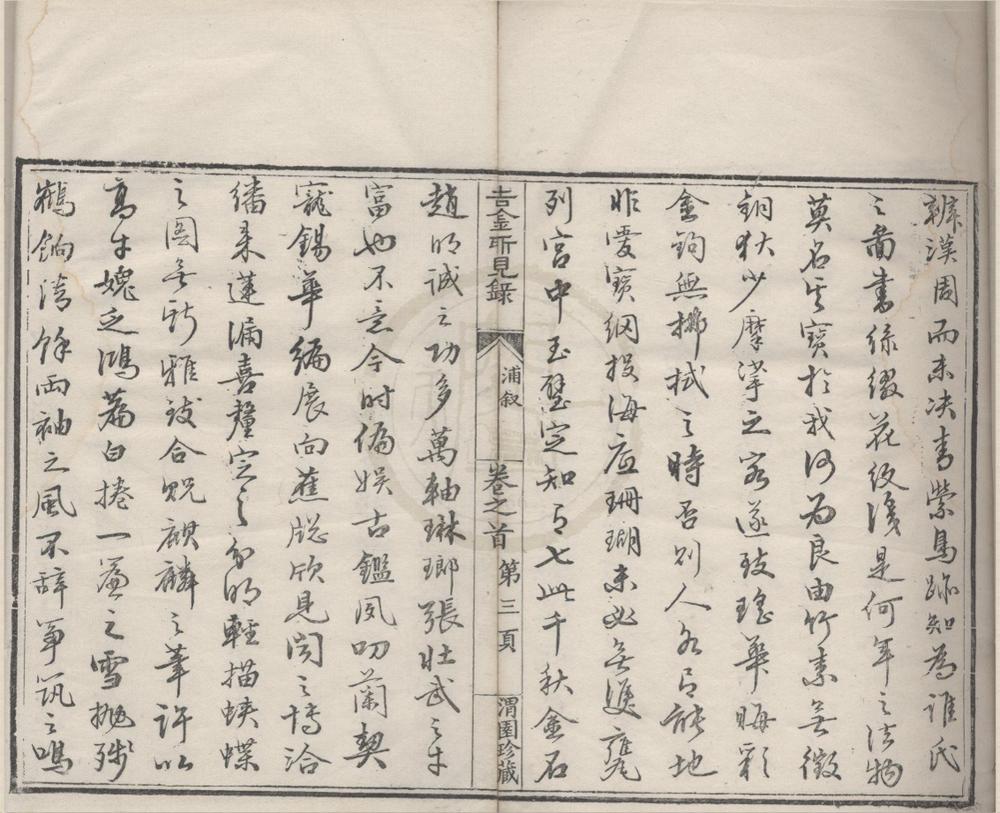 辨漢周而未决青縈鳥跡知為誰氏
之圖書綠綴花紋漫是何年之法物
莫名其寶於我何為良由竹素無徵
銅狄少摩挲之客遂致瑤華晦彩
金鉤無拂拭之時否則人各有能地
非愛寶網投海底珊瑚未必無獲甕
列宮中玉璧定知有七此千秋金石
吉金所見錄 浦叙 卷之首 第三頁 渭園珍藏
趙明誠之功多萬軸琳瑯張壯武之才
富也不意今時偏娛古鑑夙叨蘭契
寵錫華編展向蕉牕欣見聞之博洽
繙來蓮漏喜釐定之分明輕描蛺蝶
之圖無斯雅致合貺麒麟之筆許以
高才媿乏鴻篇白捲一簾之雪拋殘
鶴餉清餘兩袖之風不辭箏筑之鳴